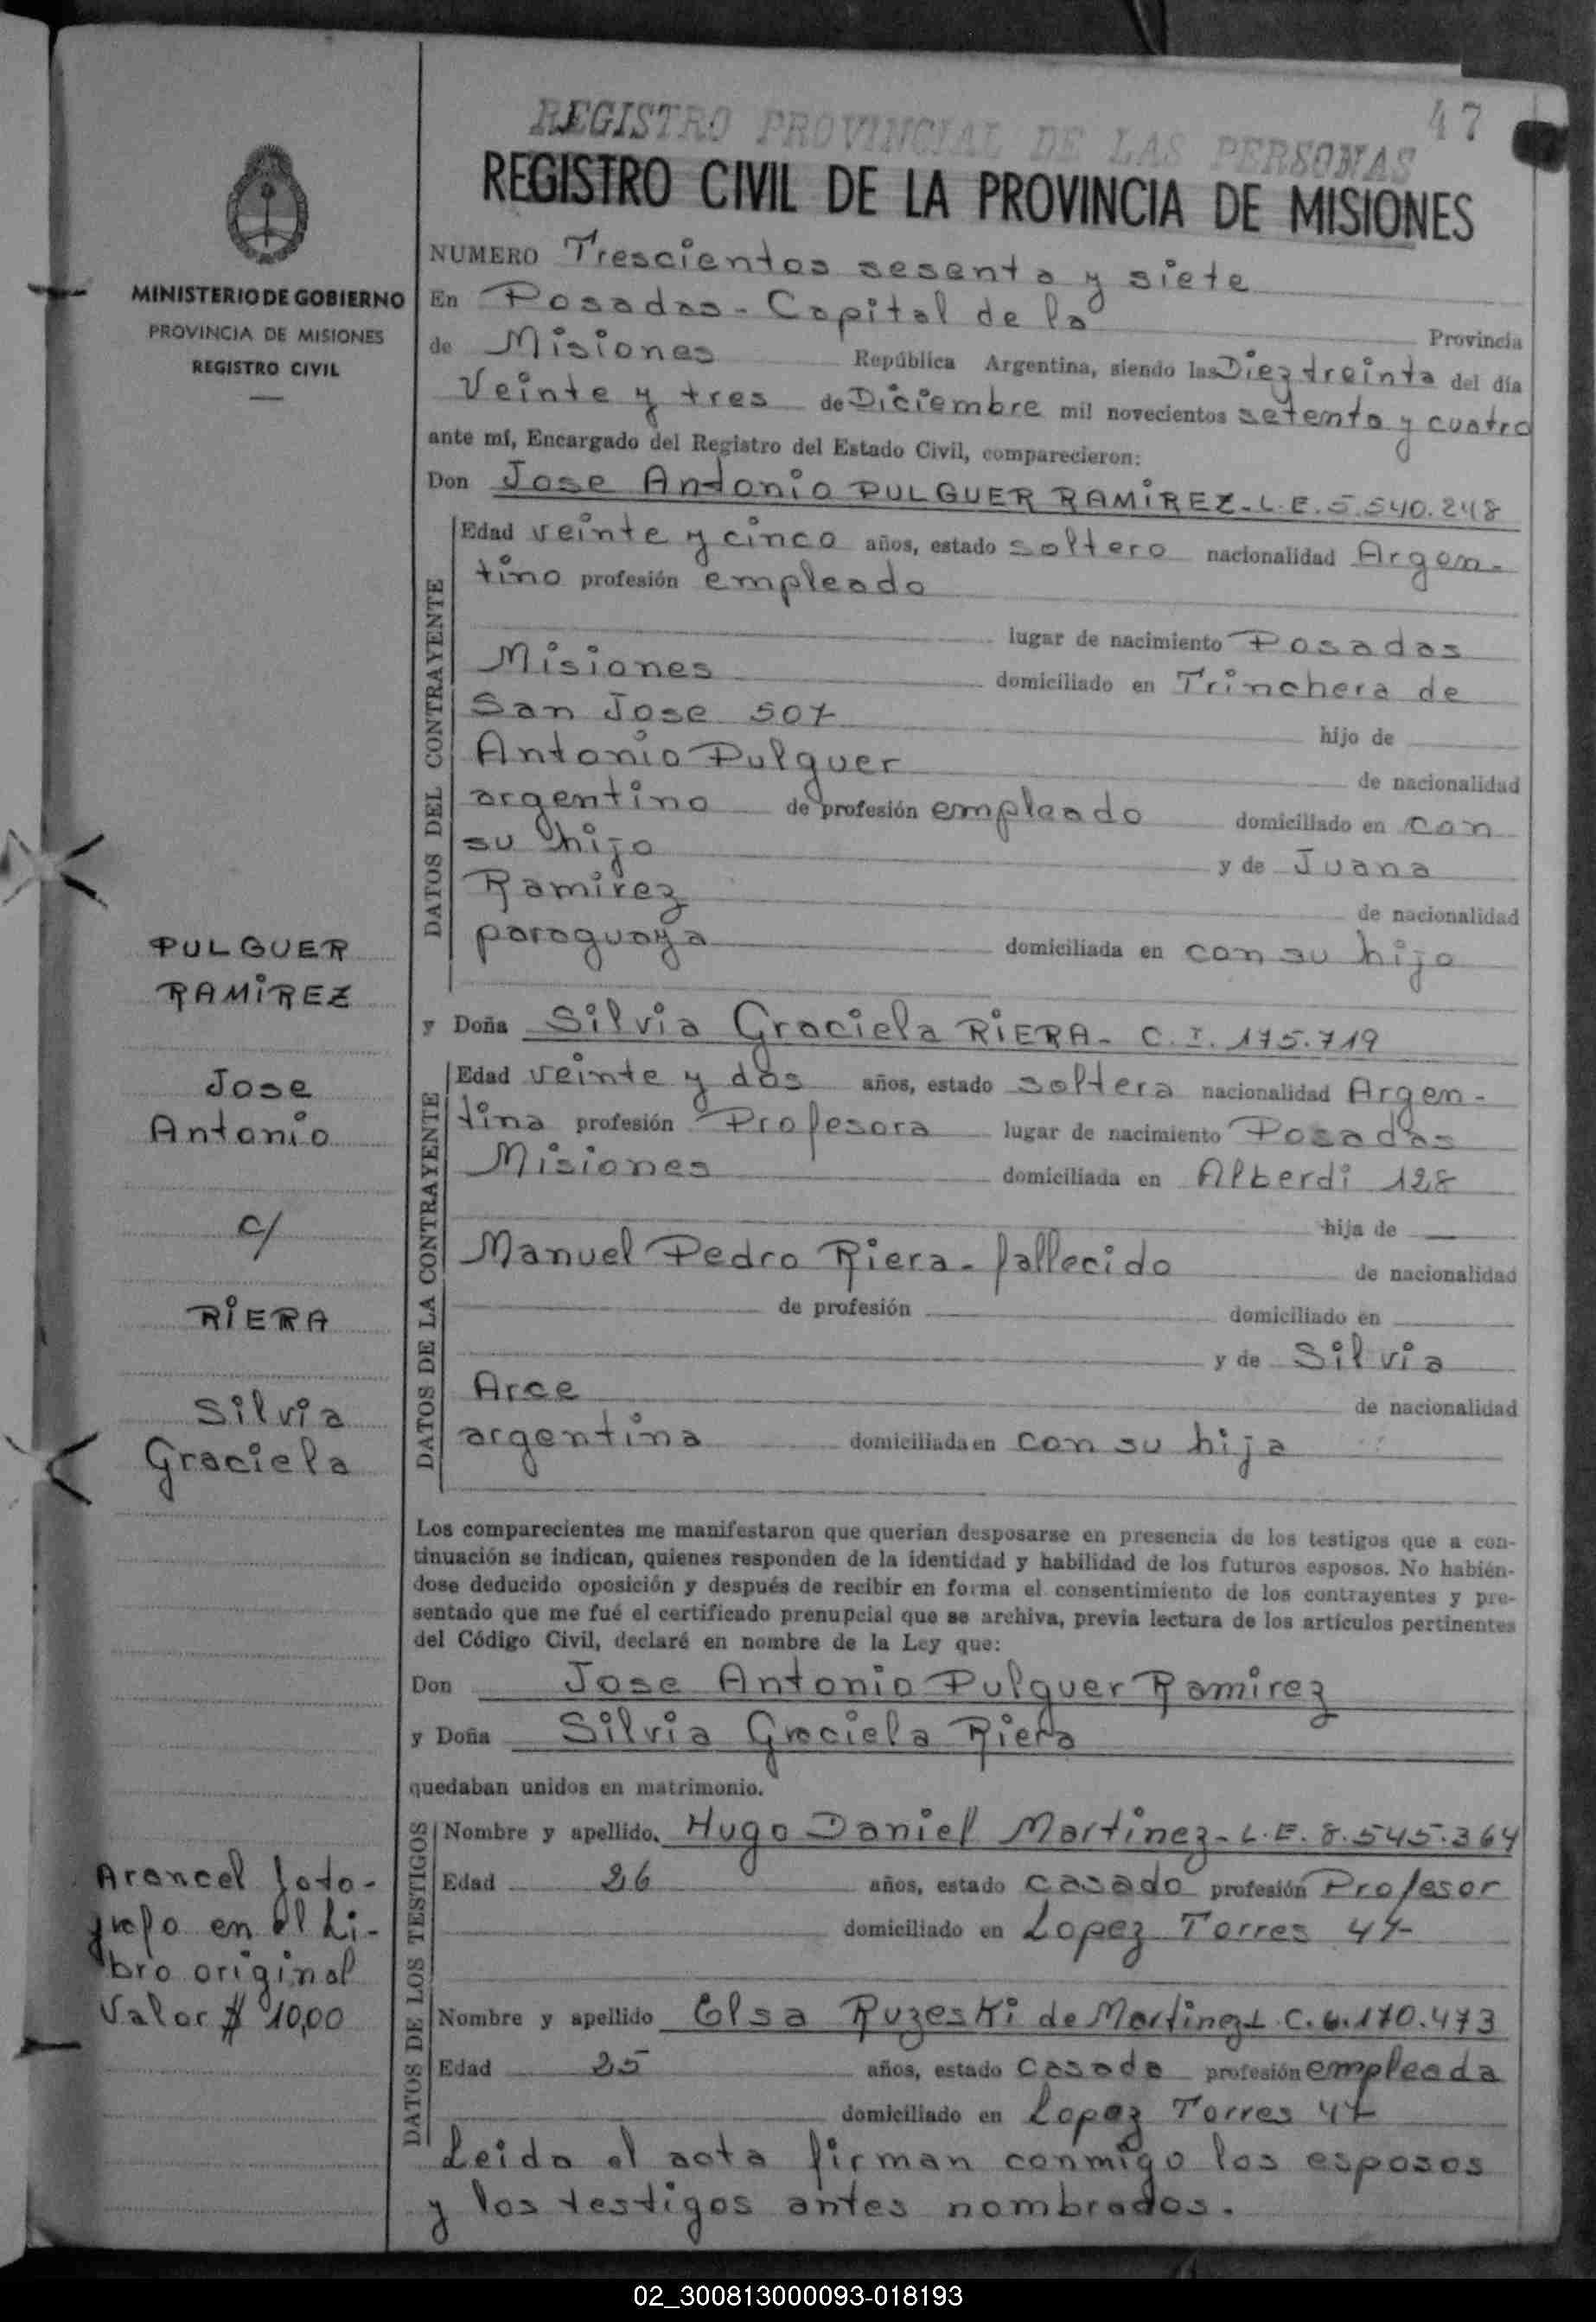 47
REGISTRO PROVINCIAL DE LAS PERSONAS
REGISTRO CIVIL DE LA PROVINCIA DE MISIONES
MINISTERIO DE GOBIERNO
PROVINCIA DE MISIONES
REGISTRO CIVIL
PULGUER
RAMIREZ
Jose
Antonio
c/
RIERA
Silvia
Graciela
Arancel foto-
grafo en el Li-
bro original
Valor $ 10,00
NUMERO Trescientos sesenta y siete
En Posadas - Capital de la Provincia
de Misiones República Argentina, siendo las Diez treinta del día
Veinte y tres de Diciembre mil novecientos setenta y cuatro
ante mí, Encargado del Registro del Estado Civil, comparecieron:
Don Jose Antonio PULGUER RAMIREZ - L.E. 5.540.248
DATOS DEL CONTRAYENTE
Edad veinte y cinco años, estado soltero nacionalidad Argen-
tino profesión empleado
lugar de nacimiento Posadas
Misiones domiciliado en Trinchera de
San Jose 507
hijo de
Antonio Pulguer de nacionalidad
argentino de profesión empleado domiciliado en con
su hijo y de Juana
Ramirez de nacionalidad
paraguaya domiciliada en con su hijo
y Doña Silvia Graciela RIERA - C.I. 175.719
DATOS DE LA CONTRAYENTE
Edad veinte y dos años, estado soltera nacionalidad Argen-
tina profesión Profesora lugar de nacimiento Posadas
Misiones domiciliada en Alberdi 128
hija de
Manuel Pedro Riera - fallecido de nacionalidad
de profesión domiciliado en
y de Silvia
Arce de nacionalidad
argentina domiciliada en con su hija
Los comparecientes me manifestaron que querían desposarse en presencia de los testigos que a con-
tinuación se indican, quienes responden de la identidad y habilidad de los futuros esposos. No habién-
dose deducido oposición y después de recibir en forma el consentimiento de los contrayentes y pre-
sentado que me fué el certificado prenupcial que se archiva, previa lectura de los artículos pertinentes
del Código Civil, declaré en nombre de la Ley que:
Don Jose Antonio Pulguer Ramirez
y Doña Silvia Graciela Riera
quedaban unidos en matrimonio.
DATOS DE LOS TESTIGOS
Nombre y apellido. Hugo Daniel Martinez - L.E. 8.545.364
Edad 26 años, estado casado profesión Profesor
domiciliado en Lopez Torres 47
Nombre y apellido Elsa Ruzeski de Martinez L.C. 6.170.473
Edad 25 años, estado casada profesión empleada
domiciliado en Lopez Torres 47
Leida el acta firman conmigo los esposos
y los testigos antes nombrados.
02_300813000093-018193